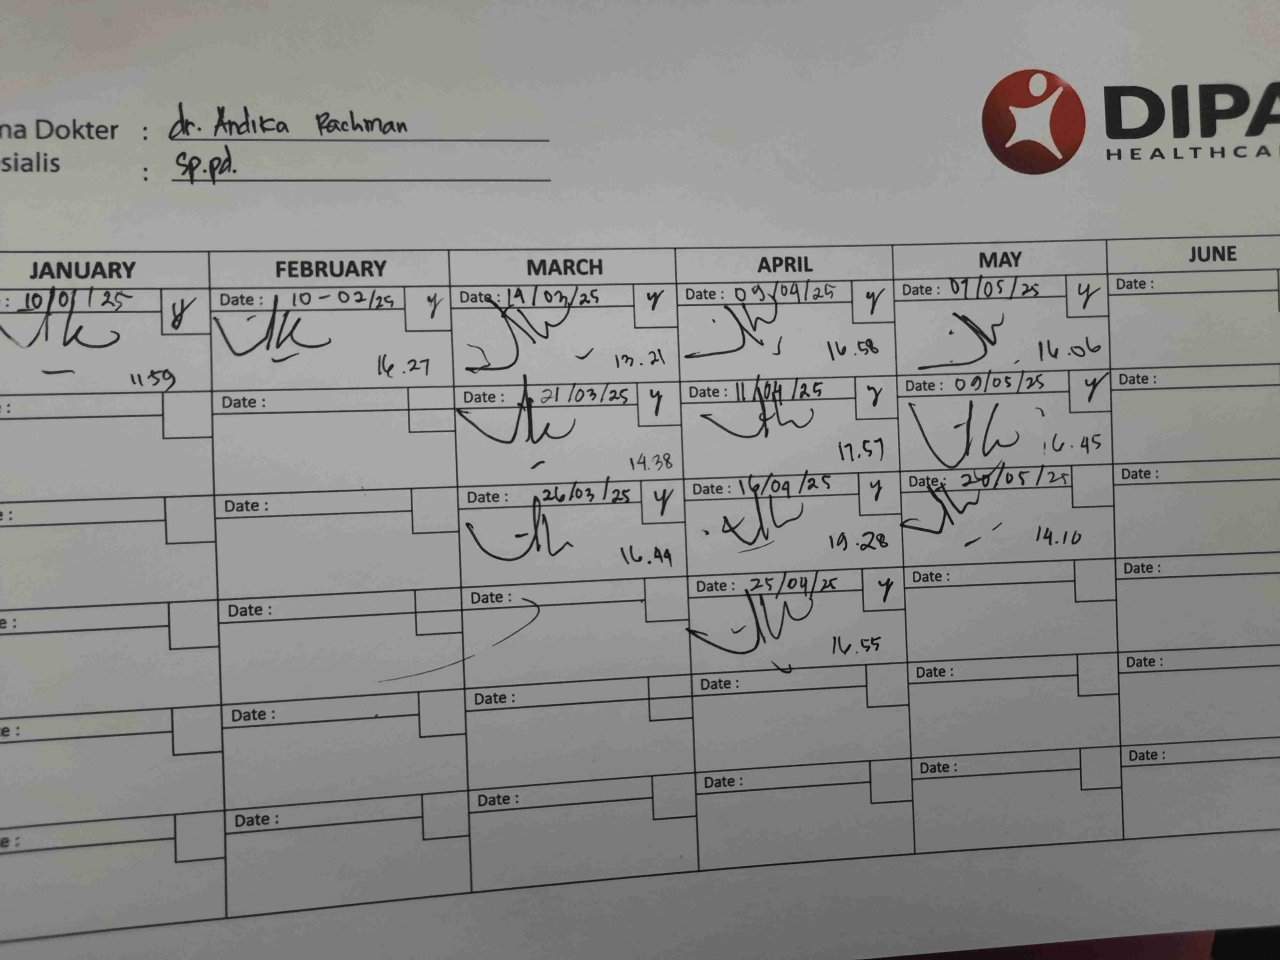 na Dokter : dr. Andika Rachman
sialis : Sp.pd.
DIPA
HEALTHCA
JANUARY FEBRUARY MARCH APRIL MAY JUNE
: 10/01/25 y Date : 10-02/25 y Date : 19/03/25 y Date : 09/04/25 y Date : 07/05/25 y Date :
11.59 16.27 13.21 16.58 16.06
: Date : Date : 21/03/25 y Date : 11/04/25 y Date : 09/05/25 y Date :
14.38 17.57 16.45
: Date : Date : 26/03/25 y Date : 16/04/25 y Date : 20/05/25 Date :
16.44 19.28 14.10
e : Date : Date : Date : 25/04/25 y Date : Date :
16.55
e : Date : Date : Date : Date : Date :
e : Date : Date : Date : Date : Date :